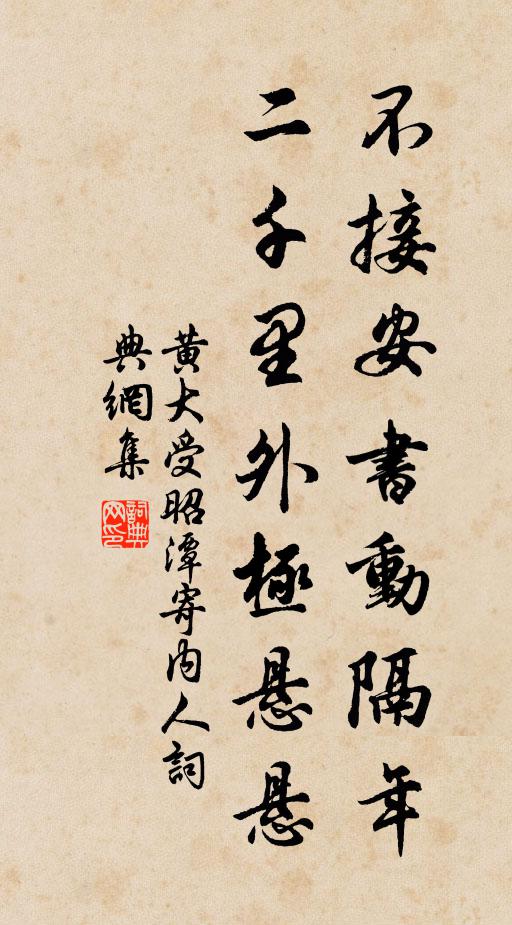 不接安書動隔年
二千里外極悬悬
黄大受昭潭寄内人詞
典網集
詞典网印